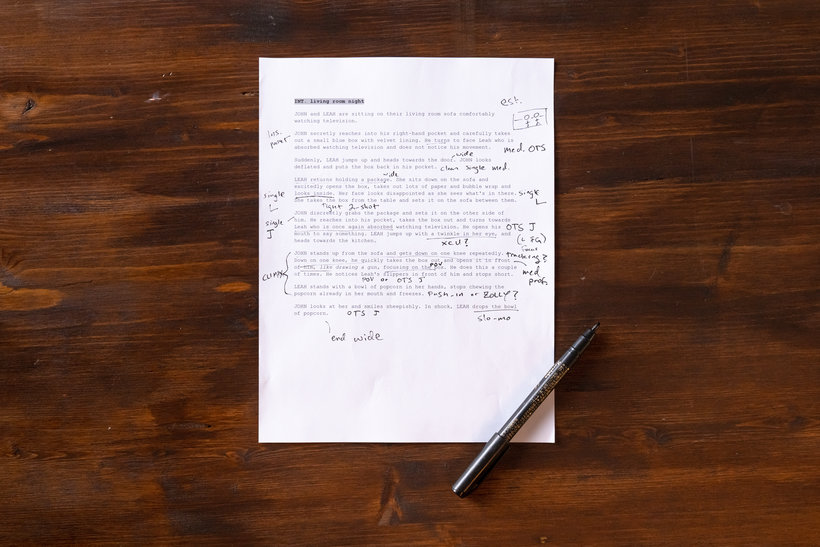 INT. living room night
est.
JOHN and LEAH are sitting on their living room sofa comfortably
watching television.
JOHN secretly reaches into his right-hand pocket and carefully takes
out a small blue box with velvet lining. He turns to face Leah who is
absorbed watching television and does not notice his movement.
med. OTS
wide
Suddenly, LEAH jumps up and heads towards the door. JOHN looks
deflated and puts the box back in his pocket.
clean single med.
wide
LEAH returns holding a package. She sits down on the sofa and
excitedly opens the box, takes out lots of paper and bubble wrap and
single
L
looks inside. Her face looks disappointed as she sees what's in there.
single
L
She takes the box from the table and sets it on the sofa between them.
tight 2-shot
JOHN discreetly grabs the package and sets it on the other side of
single
J
him. He reaches into his pocket, takes the box out and turns towards
Leah who is once again absorbed watching television. He opens his
OTS J
mouth to say something. LEAH jumps up with a twinkle in her eye, and
heads towards the kitchen.
XCU?
JOHN stands up from the sofa and gets down on one knee repeatedly.
tracking?
Down on one knee, he quickly takes the box out and opens it in front
POV
of him, like drawing a gun, focusing on the box. He does this a couple
of times. He notices Leah's slippers in front of him and stops short.
med
POV or OTS J
LEAH stands with a bowl of popcorn in her hands, stops chewing the
popcorn already in her mouth and freezes.
push-in or ZOLLY?
JOHN looks at her and smiles sheepishly. In shock, LEAH drops the bowl
of popcorn.
OTS J
slo-mo
end wide